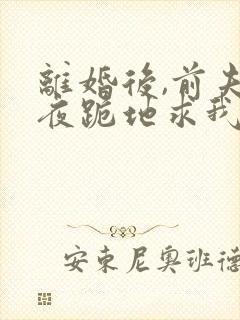 離婚後,前夫
夜跪地求我
安東尼奧班德